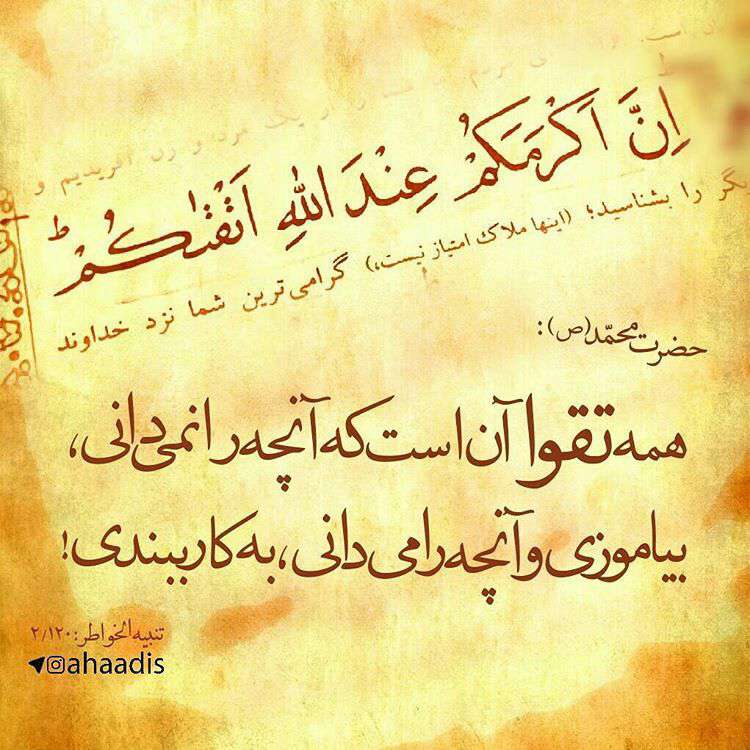 یک مرد و زن آفریدیم و
اِنَّ اَکْرَمَکُمْ عِنْدَ اللهِ اَتْقٰیکُمْ ط
گر را بشناسید؛ (اینها ملاک امتیاز نیست،) گرامی‌ترین شما نزد خداوند
حضرت محمّد(ص):
همه تقوا آن است که آنچه را نمی‌دانی،
بیاموزی و آنچه را می‌دانی، به کار ببندی!
تنبیه الخواطر: ۲/۱۲۰
ahaadis